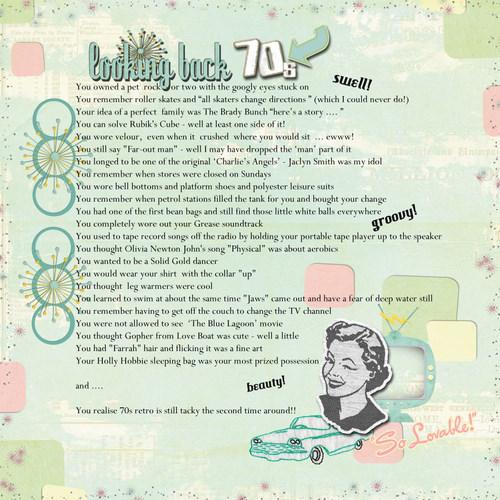 looking back 70s
swell!
You owned a pet rock or two with the googly eyes stuck on
You remember roller skates and "all skaters change directions " (which I could never do!)
Your idea of a perfect family was The Brady Bunch "here's a story …. "
You can solve Rubik's Cube - well at least one side of it!
You wore velour, even when it crushed where you would sit ... ewww!
You still say "Far-out man" - well I may have dropped the 'man' part of it
You longed to be one of the original 'Charlie's Angels' - Jaclyn Smith was my idol
You remember when stores were closed on Sundays
You wore bell bottoms and platform shoes and polyester leisure suits
You remember when petrol stations filled the tank for you and bought your change
You had one of the first bean bags and still find those little white balls everywhere
groovy!
You completely wore out your Grease soundtrack
You used to tape record songs off the radio by holding your portable tape player up to the speaker
You thought Olivia Newton John's song "Physical" was about aerobics
You wanted to be a Solid Gold dancer
You would wear your shirt with the collar "up"
You thought leg warmers were cool
You learned to swim at about the same time "Jaws" came out and have a fear of deep water still
You remember having to get off the couch to change the TV channel
You were not allowed to see 'The Blue Lagoon' movie
You thought Gopher from Love Boat was cute - well a little
You had "Farrah" hair and flicking it was a fine art
Your Holly Hobbie sleeping bag was your most prized possession
and ….
beauty!
You realise 70s retro is still tacky the second time around!!
"So Lovable!"